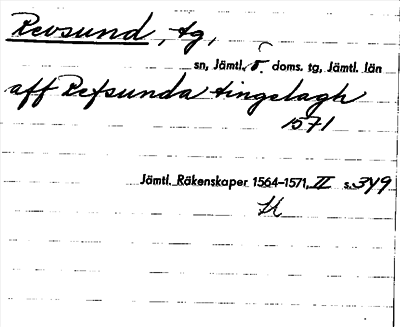 Revsund, tg,
sn, Jämtl. ö. doms. tg, Jämtl. län
aff Refsunda tingslagh
1571
Jämtl. Räkenskaper 1564–1571, II s. 349